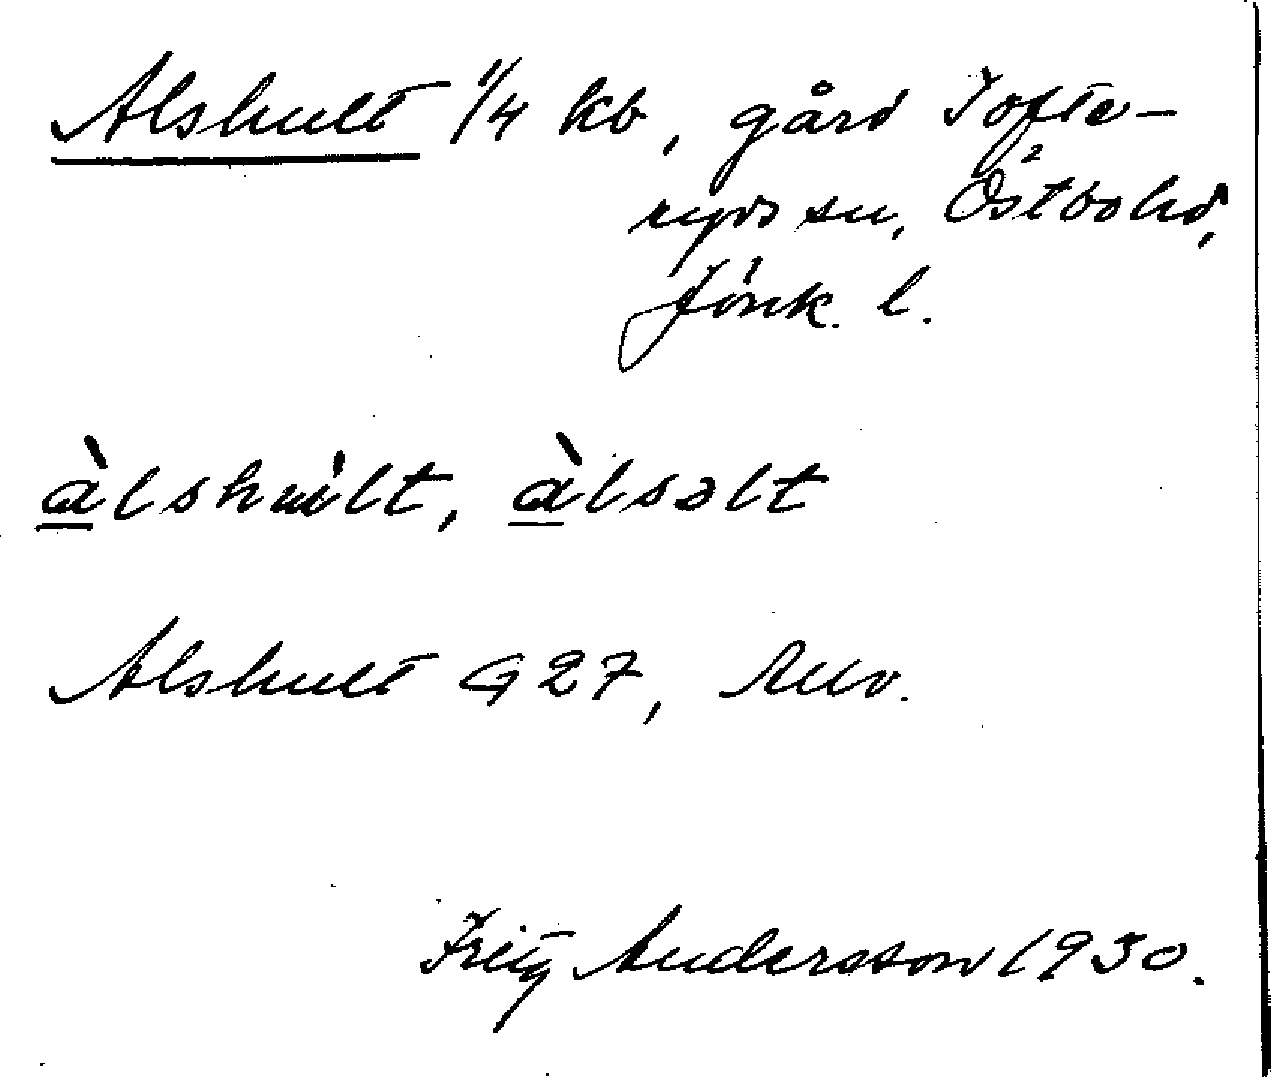 Alshult 1/4 kb, gård Tofte-
ryds sn, Östbo hd,
Jönk. l.
àlshùlt, àlsəlt
Alshult G 27,
Fritz Andersson 1930.